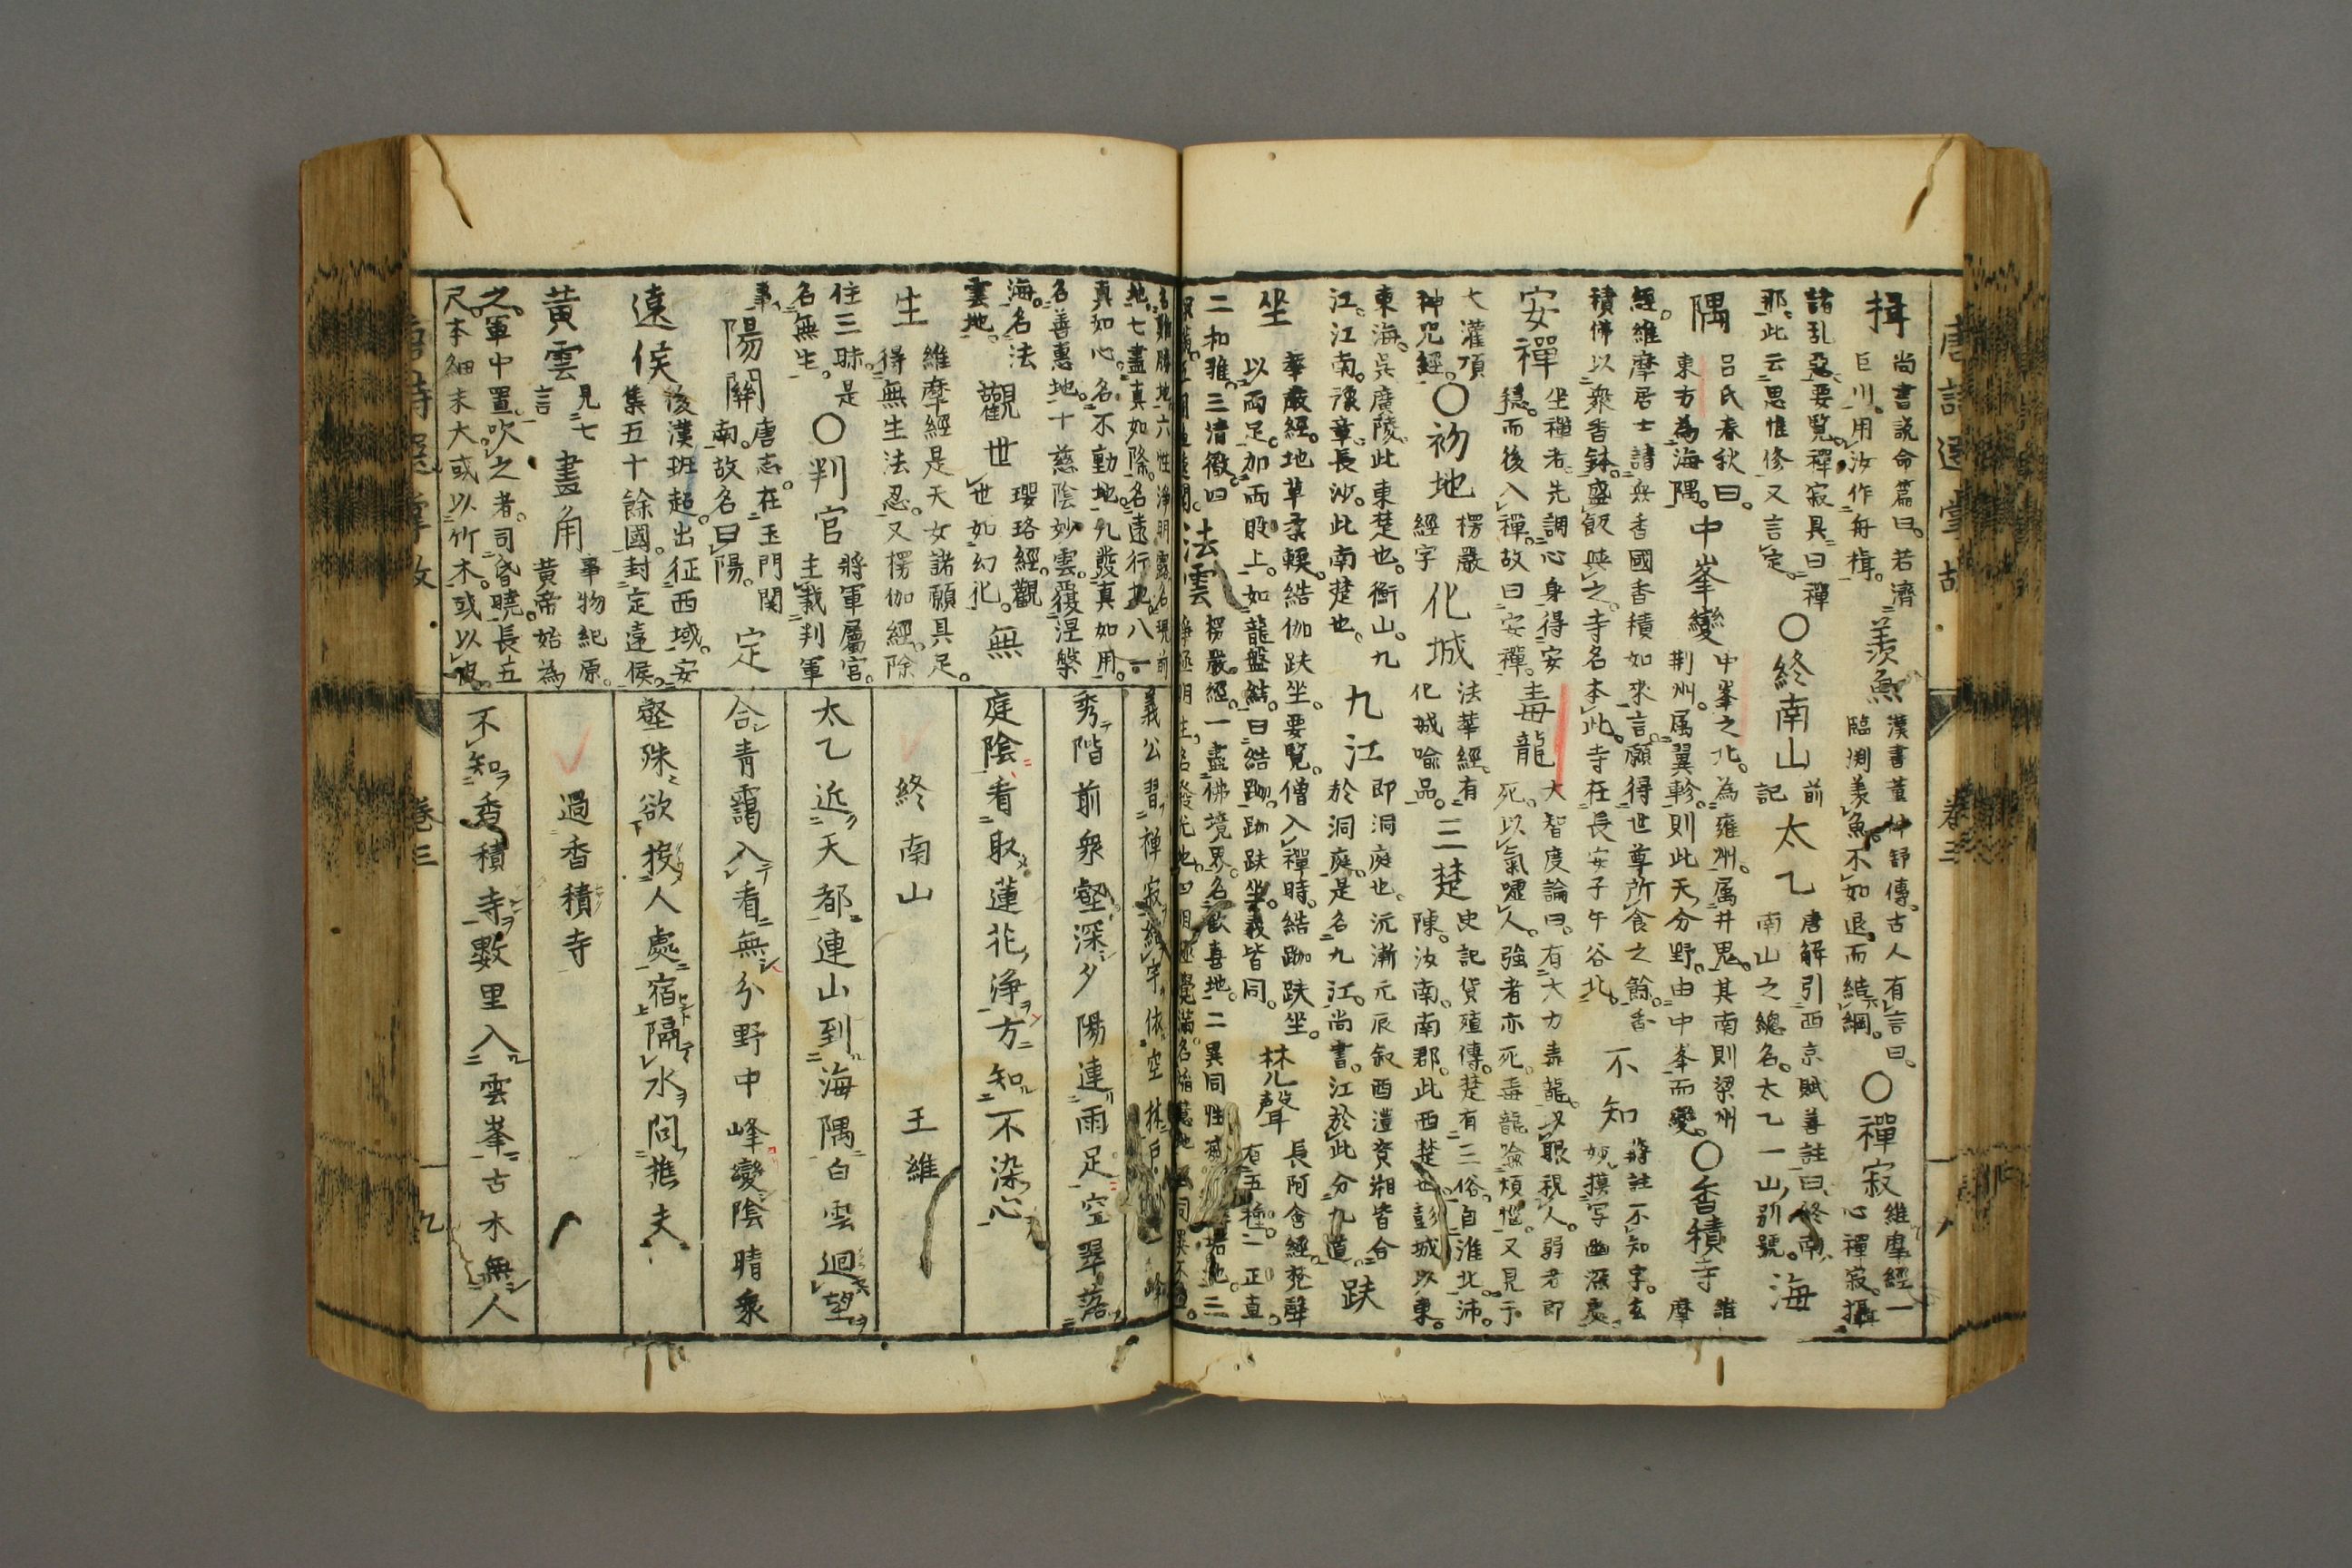 唐詩選掌故
楫 尚書說命篇曰。若濟
巨川。用汝作舟楫。
羨魚 漢書董仲舒傳。古人有言曰。
臨渊羨魚。不如退而結網。
〇禪寂 維摩經一
心禪寂。攝
諸乱惡。要覧。禪寂具曰禪
那。此云思惟修。又言定。
〇終南山 前
記
太乙 唐解引西京賦善註曰。終南。
南山之總名。太乙一山別號。
海
隅 呂氏春秋曰。
東方為海隅。
中峯變 中峯之北。為雍州。属井鬼。其南則梁州
荆州。属翼軫。則此天分野。由中峯而變。
〇香積寺 維
摩
經。維摩居士請衆香國香積如來言。願得世尊所食之餘。香
積佛以衆香鉢。盛飯與之。寺名本此。寺在長安子午谷北。
不知 蒋註不知字。玄
妙。摸写幽深處。
安禪 坐禪者。先調心身得安
穩。而後入禪。故曰安禪。
毒龍 大智度論曰。有大力毒龍。以眼視人。弱者即
死。以氣噓人。強者亦死。毒龍喩煩惱。又見于
大灌頂
神咒經。
〇初地 楞嚴
經字
化城 法華經。有
化城喩品。
三楚 史記貨殖傳。楚有三俗。自淮北。沛。
陳。汝南。南郡。此西楚也。彭城以東。
東海。吳廣陵。此東楚也。衡山。九
江。江南。豫章。長沙。此南楚也。
九江 即洞庭也。沅漸元辰叙酉澧資湘皆合
於洞庭。是名九江。尚書。江於此分九道。
趺
坐 華嚴經。地草柔軟。結伽趺坐。要覧。僧入禪時。結跏趺坐。
以兩足。加兩股上。如龍盤結。曰結跏。跏趺坐。義皆同。
梵聲 長阿含經。梵聲
有五種。一正直。
二和雅。三清徹。四
法雲 楞嚴經。一盡佛境界。名歡喜地。二異同性滅。
地。七盡真如際。名遠行地。八一
真如心。名不動地。九發真如用。
名善惠地。十慈陰妙雲。覆涅槃
海。名法
雲地。
觀世 瓔珞經。觀
世如幻化。
無
生 維摩經是天女諸願具足。
得無生法忍。又楞伽經。除
住三昧。是
名無生。
〇判官 將軍屬官。
主義判軍
事。
陽關 唐志。在玉門関
南。故名曰陽。
定
遠侯 後漢班超。出征西域。安
集五十餘國。封定遠侯。
黃雲 見七
言
畫角 事物紀原。
黄帝始為
之。軍中置。吹之者。司昏曉。長五
尺。本細末大。或以竹木。或以皮。
義公習禪寂結宇依空林戶
秀階前衆壑深夕陽連雨足空翠落
庭陰看取蓮花淨方知不染心
終南山 王維
太乙近天都連山到海隅白雲迴望
合青靄入看無分野中峰變陰晴衆
壑殊欲投人處宿隔水問樵夫
過香積寺
不知香積寺數里入雲峯古木無人
卷三
九